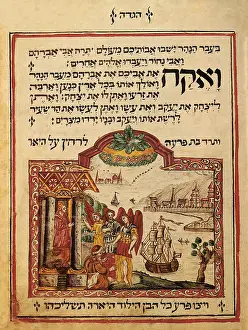 הגדה
בעבר הנהר ישבו אבותיכם מעולם תרח אבי אברהם
ואבי נחור ויעבדו אלהים אחרים:
ואקח את אביכם את אברהם מעבר הנהר
ואולך אותו בכל ארץ כנען וארבה
את זרעו ואתן לו את יצחק ואתן
ליצחק את יעקב ואת עשו ואתן לעשו את הר שעיר
לרשת אותו ויעקב ובניו ירדו מצרים:
ותרד בת פרעה לרחוץ על היאר
ויצו פרעה כל הבן הילוד היארה תשליכהו